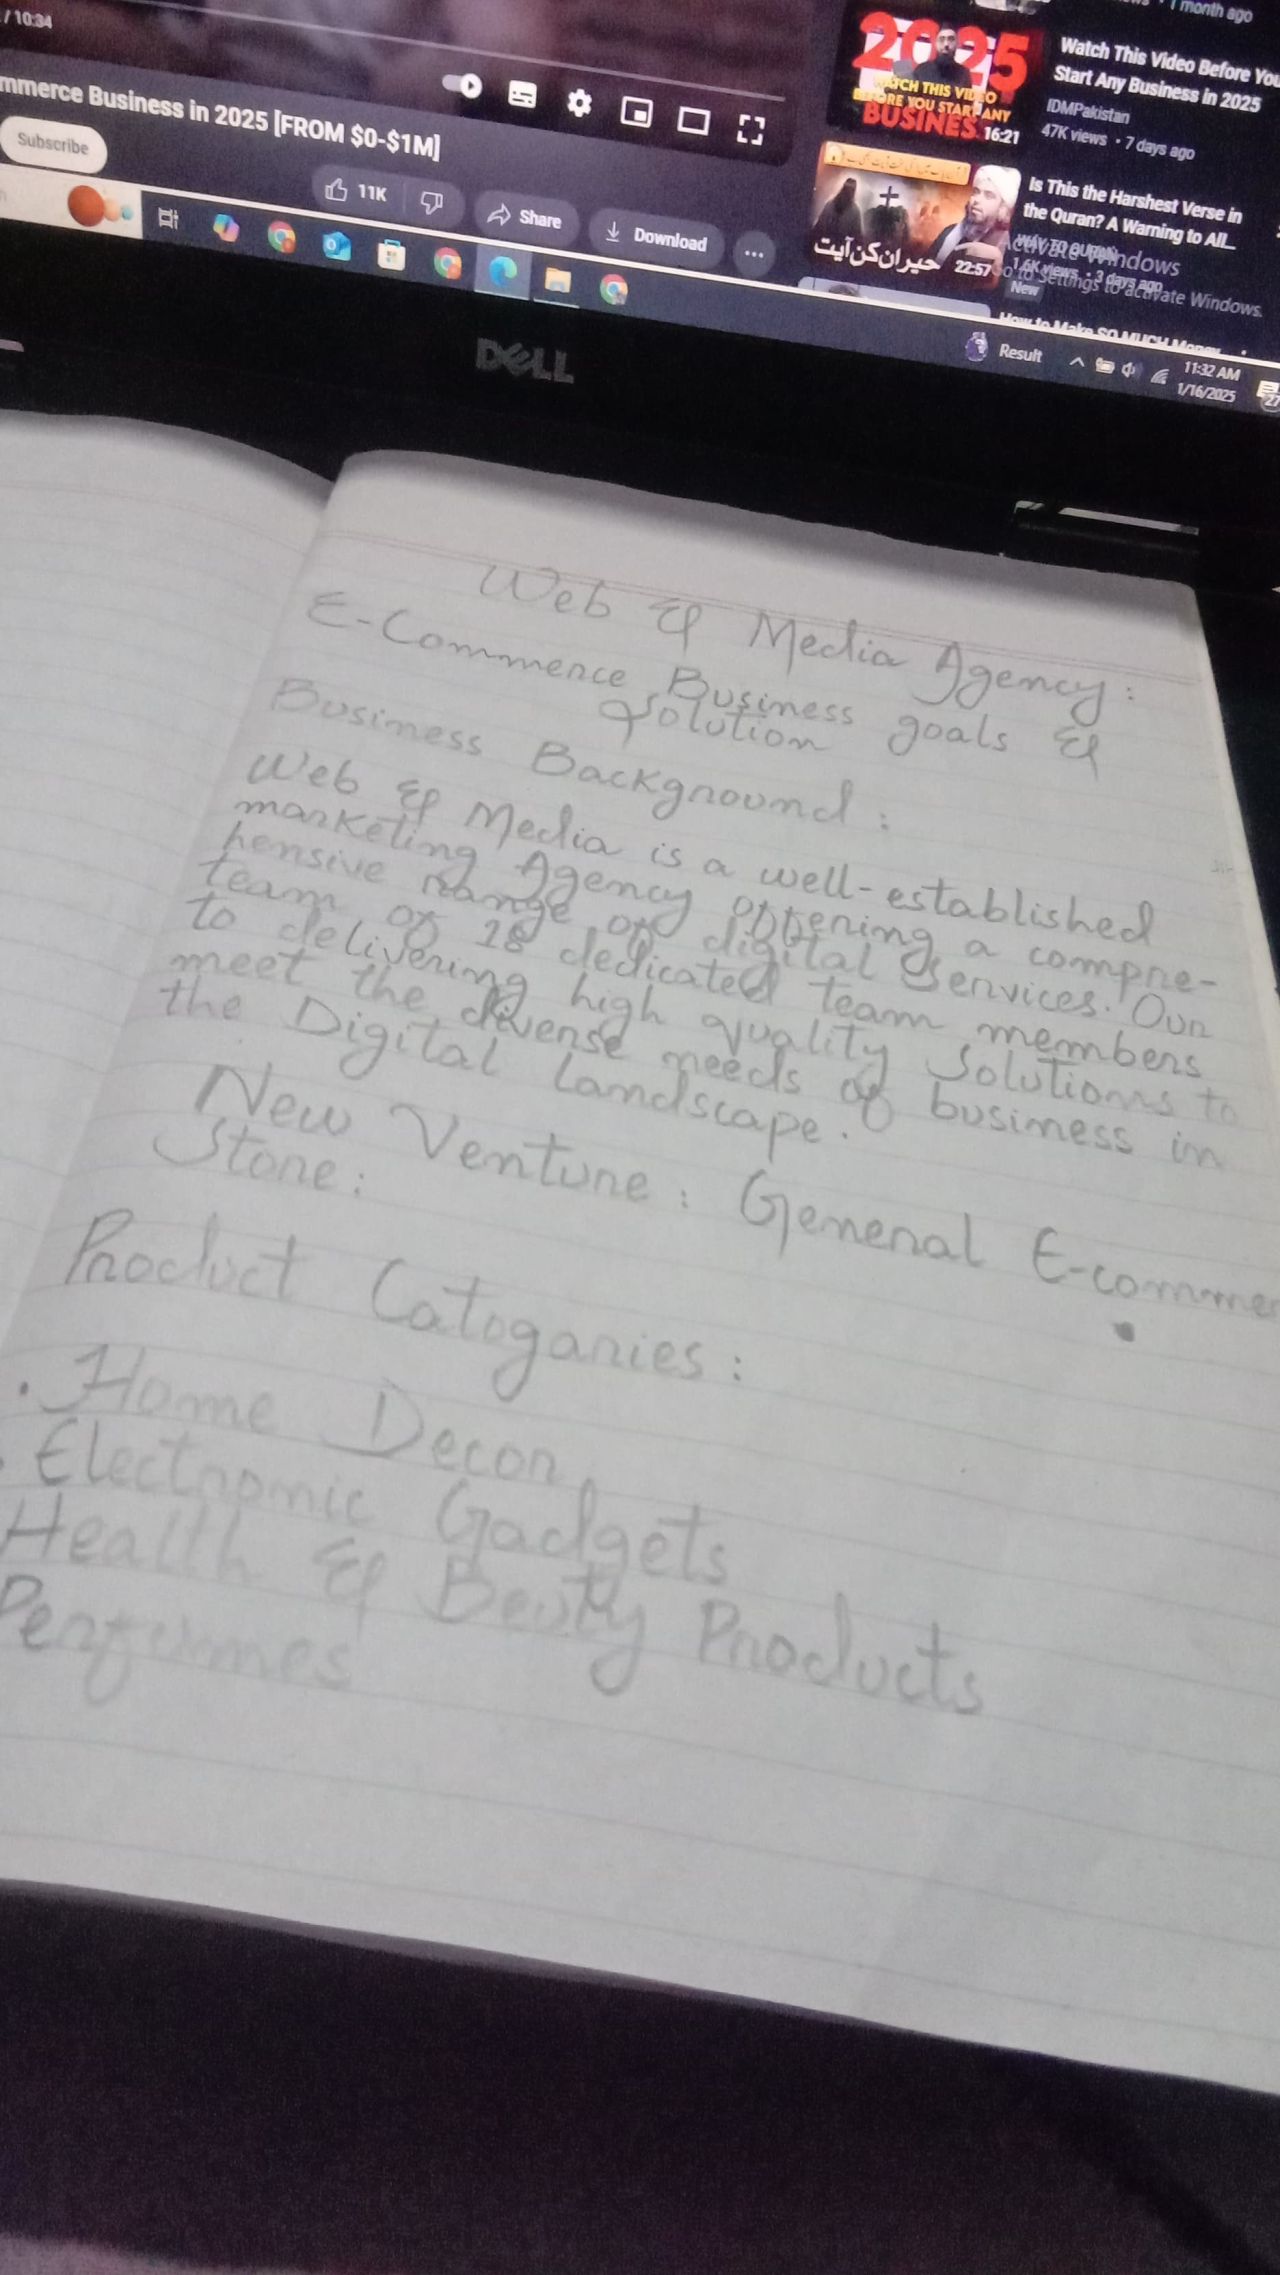 / 10:34
mmerce Business in 2025 [FROM $0-$1M]
Subscribe
11K
Share
Download
2025
WATCH THIS VIDEO
BEFORE YOU START ANY
BUSINES
16:21
1 month ago
Watch This Video Before You
Start Any Business in 2025
IDMPakistan
47K views • 7 days ago
حیران کن آیت
22:57
Is This the Harshest Verse in
the Quran? A Warning to All...
WAY TO QURAN
1.6K views • 3 days ago
New
Activate Windows
Go to Settings to activate Windows.
How to Make SO MUCH Money
Result
11:32 AM
1/16/2025
27
DELL
Web & Media Agency:
E-Commerce Business goals &
Solution
Business Background:
Web & Media is a well-established
marketing Agency offering a compre-
hensive range of digital Services. Our
team of 18 dedicated team members
to delivering high quality Solutions to
meet the diverse needs of business in
the Digital Landscape.
New Venture: General E-comme
Store:
Product Catogaries:
. Home Decor
. Electronic Gadgets
Health & Beuty Products
Perfumes